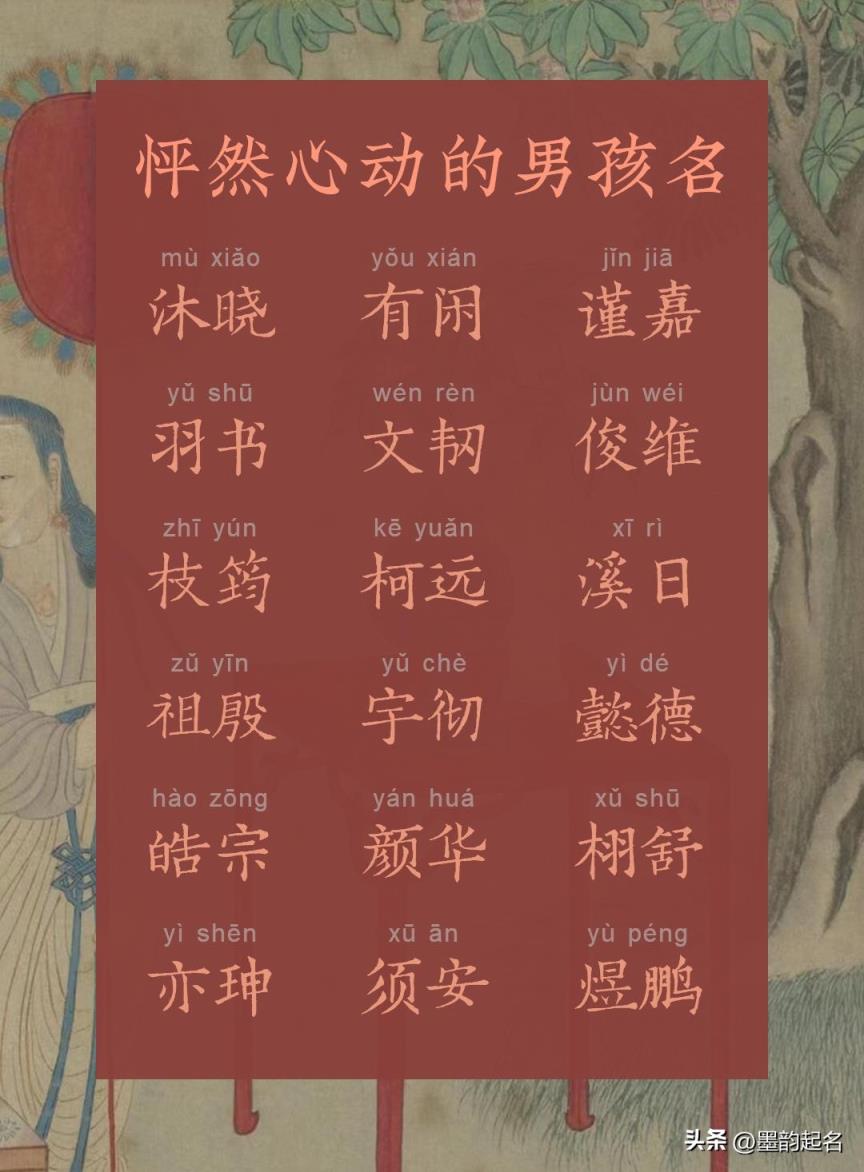 怦然心动的男孩名
mù xiǎo yǒu xián jǐn jiā
沐晓 有闲 谨嘉
yǔ shū wén rèn jùn wéi
羽书 文韧 俊维
zhī yún kē yuǎn xī rì
枝筠 柯远 溪日
zǔ yīn yǔ chè yì dé
祖殷 宇彻 懿德
hào zōng yán huá xǔ shū
皓宗 颜华 栩舒
yì shēn xū ān yù péng
亦珅 须安 煜鹏
头条 @墨韵起名